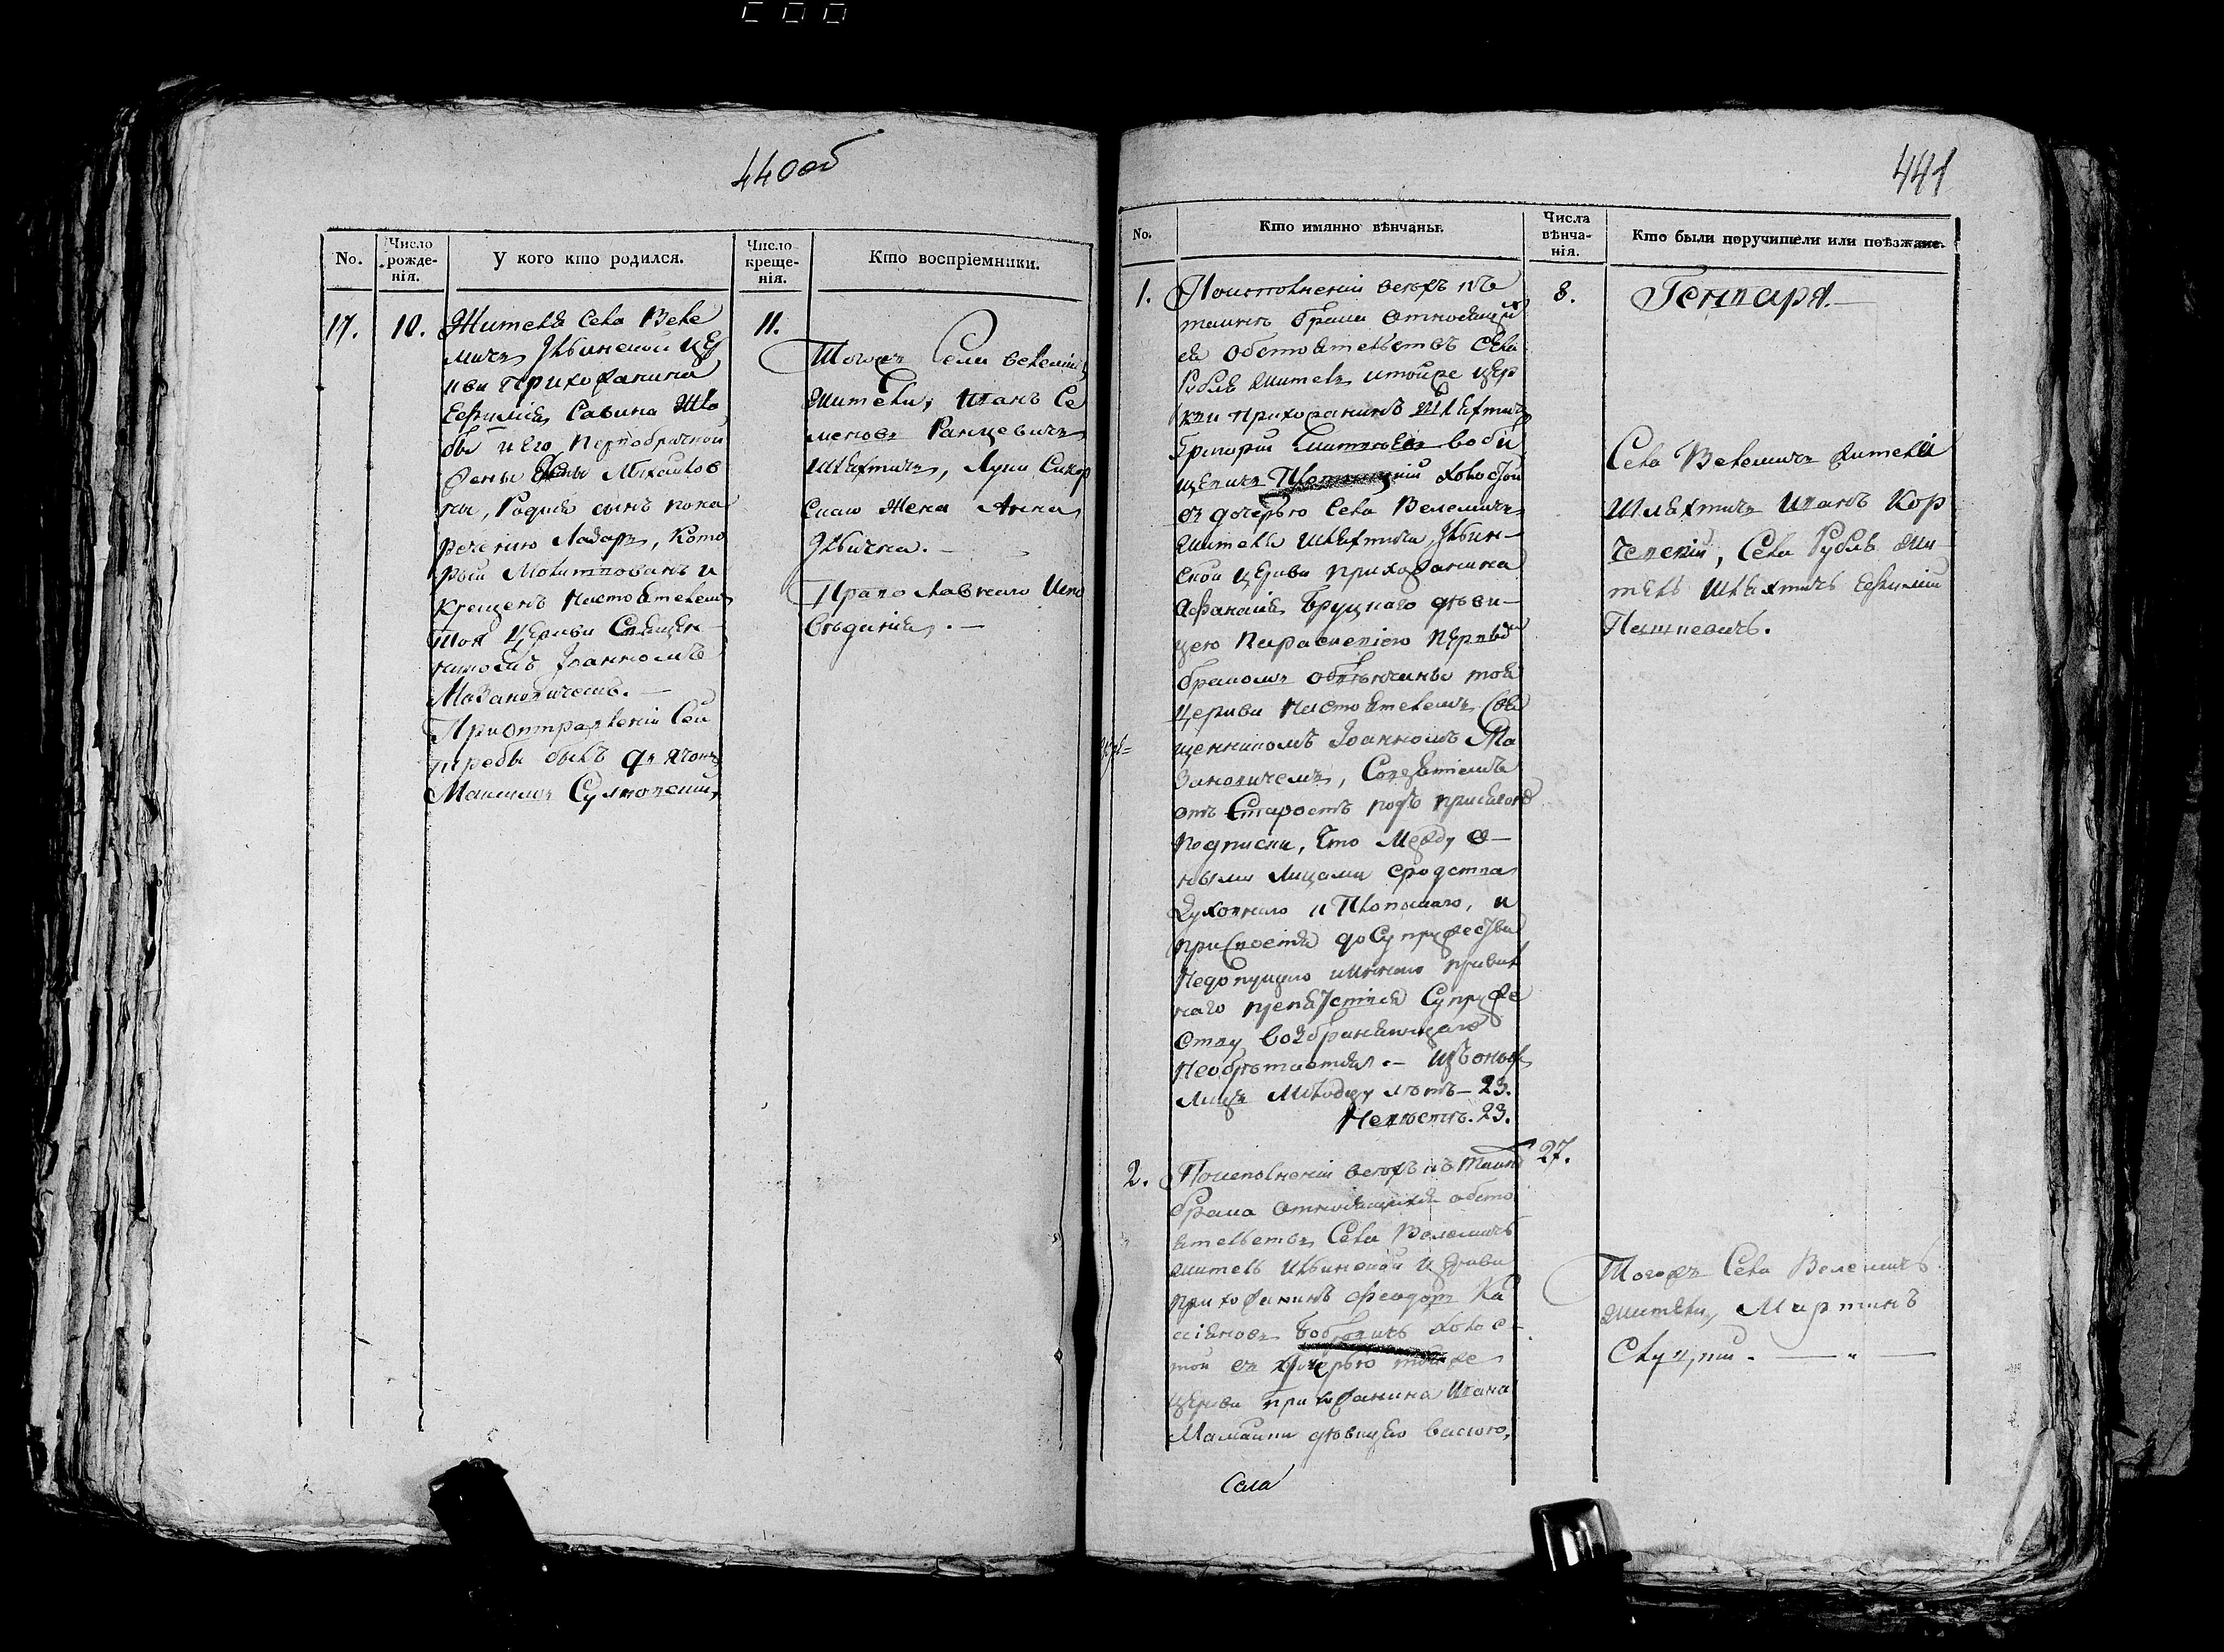 440об
No.
Число рожде-нія.
У кого кто родился.
Число креще-нія.
Кто воспріемники.
17.
10.
Жителя Села Веле
мичъ Ильинской цер
кви прихожанина
Евфимія Савина
и его первобрачной
жены Михайлов
ны, Родися сынъ нона
речено Лазарь, Кото
рый Молитвованъ и
Крещенъ Настоятелем
Тоя Церкви Священ
никомъ Іоанномъ
Мазановичемъ. —
При отправленіи Сей
требы былъ дьячокъ
Максимъ
11.
Тогожъ Села велемичъ
жители, Иванъ Се
меновъ Ранцевичъ
шляхтичъ, Луки Сикор
скаго Жена Анна
Ильична. —
Православнаго Испо
вѣданія. —
441
No.
Кто имянно вѣнчаны.
Числа вѣнча-нія.
Кто были поручители или поѣзжане.
1.
По исполненіи всехъ къ
таинѣ брака относящих
ся обстоятельствъ Села
Рубля житель и тоейже цер
кви прихожанинъ шляхтичъ
Григорій
холостой
съ дочерью Села Велемичъ
жителя шляхтича, Ильин—
ской церкви прихожанина
Афанасія Бруцкаго дѣви—
цею Параскевіею первымъ
бракомъ обвѣнчаны тоя
Церкви Настоятелемъ Свя
щенникомъ Іоанномъ Ма
зановичемъ, Сопзятіемъ
отъ Старостъ подъ присягою
подписки, что Между о—
ными лицами сродства
Духовнаго и Плотскаго, и
при своства до Супружества
Недопущаго
наго препятствія Супруже
ству возбраняющаго
Необрѣтается. — изъ оныхъ
лицъ Молодцу лѣтъ — 23.
Невѣстѣ. 23.
8.
Генваря. —
Села Велемичъ жители
Шляхтичъ Иванъ Кор
чевскій, Села Рубля жи—
тель шляхтичъ Евфимій
Пашкевичъ.
2.
По исполненіи всехъ къ таинѣ
брака относящихся обсто
ятельствъ Села Велемичъ
житель Ильинской церкви
прихожанинъ Феодотъ Ка
сіяновъ Бобровичъ холос—
той съ дочерью тойже
церкви прихожанина Ивана
Мамайки дѣвицею васою,
27.
Тогожъ Села Велемичъ
жители, Мартинъ
Слуцкій. — „ —
Села